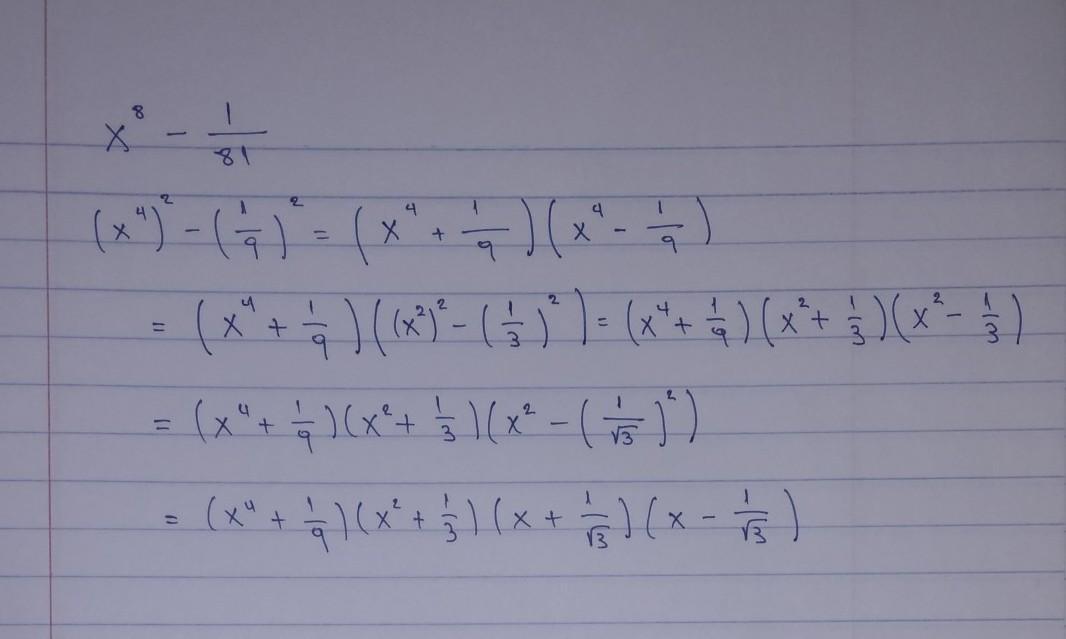 x⁸ - 1/81
(x⁴)² - (1/9)² = (x⁴ + 1/9)(x⁴ - 1/9)
= (x⁴ + 1/9)((x²)² - (1/3)²) = (x⁴ + 1/9)(x² + 1/3)(x² - 1/3)
= (x⁴ + 1/9)(x² + 1/3)(x² - (1/√3)²)
= (x⁴ + 1/9)(x² + 1/3)(x + 1/√3)(x - 1/√3)